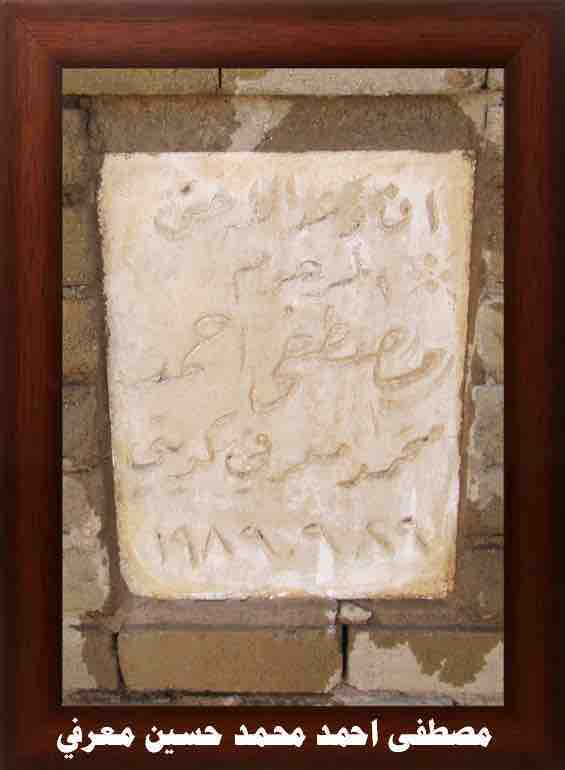 ان وعد الله حق
المرحوم
مصطفى احمد
محمد معرفي كويتي
١٩٨٩.٩.٢٩
مصطفى احمد محمد حسين معرفي